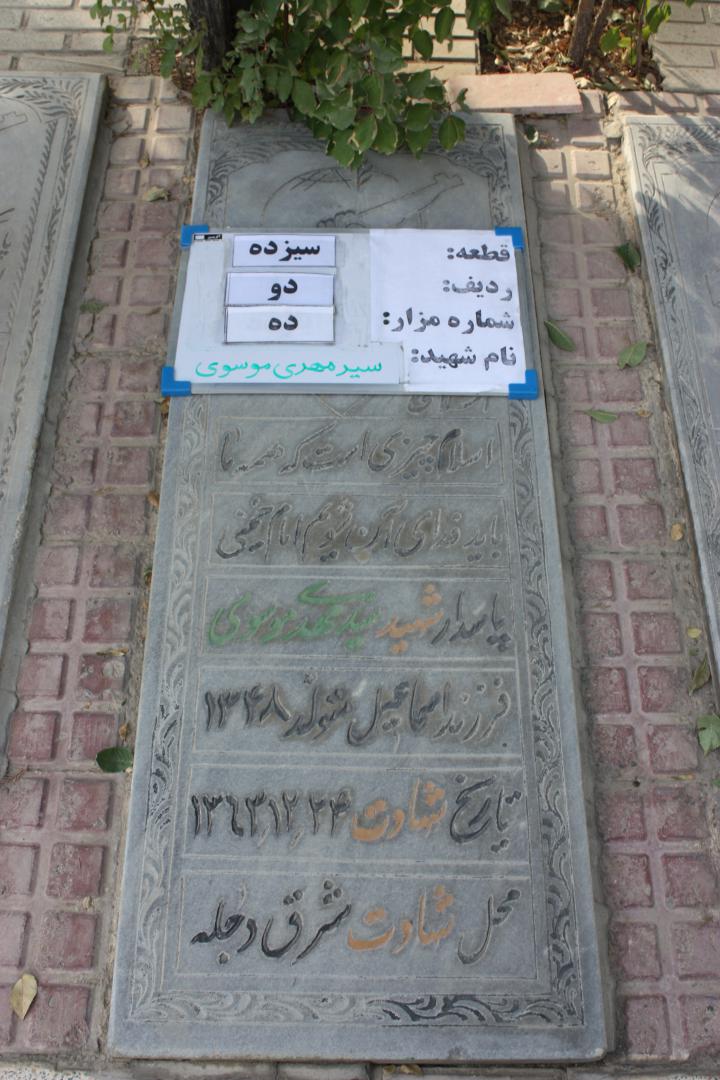 قطعه: سیزده
ردیف: دو
شماره مزار: ده
نام شهید: سید مهدی موسوی
اسلام چیزی است که همه ما
باید فدای آن شویم امام خمینی
پاسدار شهید سید مهدی موسوی
فرزند اسماعیل متولد ۱۳۴۸
تاریخ شهادت ۱۳۶۳٫۱۲٫۲۴
محل شهادت شرق دجله